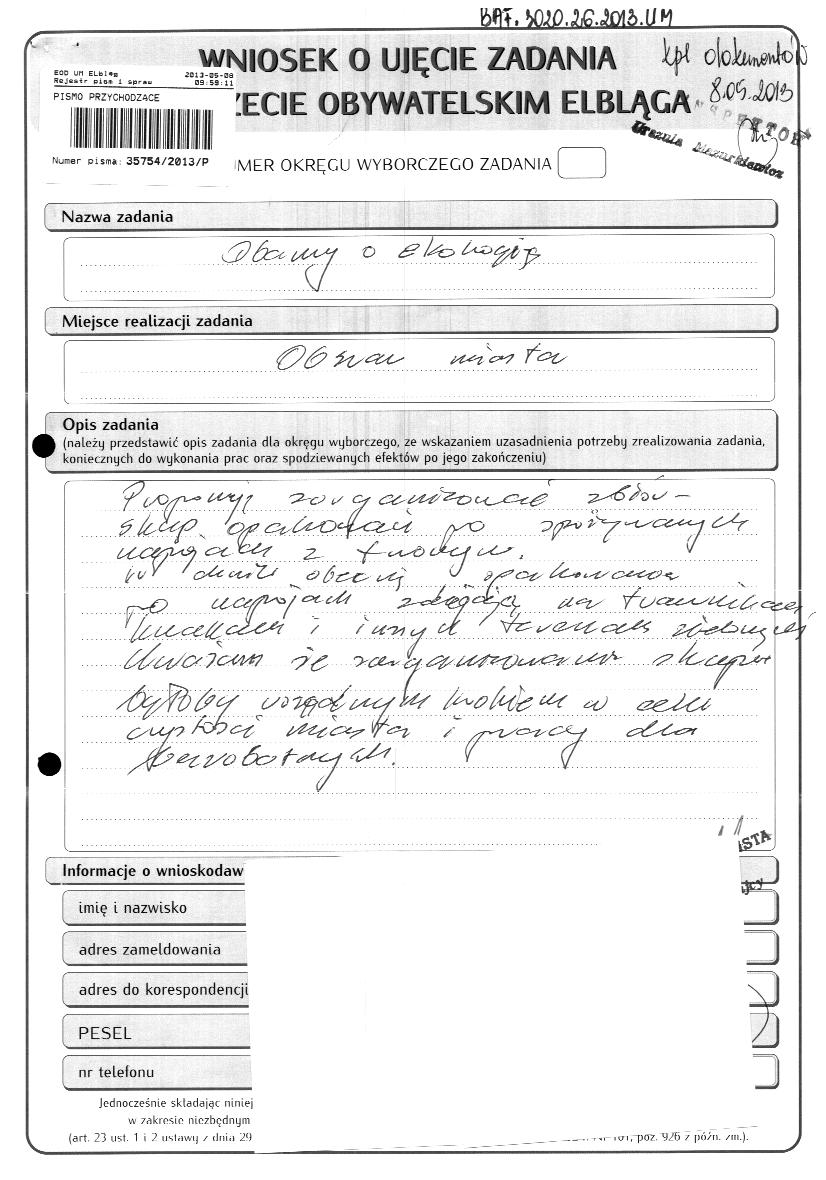 BAF.3020.26.2013.UM
WNIOSEK O UJĘCIE ZADANIA
kpl dokumentów
8.05.2013
EOD UM Elbląg 2013-05-08
Rejestr pism i spraw 09:59:11
PISMO PRZYCHODZĄCE
Numer pisma: 35754/2013/P
ZECIE OBYWATELSKIM ELBLĄGA
INSPEKTOR
Urszula Mazurkiewicz
UMER OKRĘGU WYBORCZEGO ZADANIA
Nazwa zadania
Dbamy o ekologię
Miejsce realizacji zadania
Obszar miasta
Opis zadania
(należy przedstawić opis zadania dla okręgu wyborczego, ze wskazaniem uzasadnienia potrzeby zrealizowania zadania,
koniecznych do wykonania prac oraz spodziewanych efektów po jego zakończeniu)
Proponuję zorganizować zbiór -
skup opakowań po spożywanych
napojach z
W chwili obecnej opakowania
po napojach zalegają na trawnikach,
krzakach i innych terenach zielonych
Uważam że zorganizowanie skupu
byłoby rozsądnym krokiem w celu
czystości miasta i pracy dla
bezrobotnych.
ISTA
Informacje o wnioskodaw
imię i nazwisko
adres zameldowania
adres do korespondencji
PESEL
nr telefonu
Jednocześnie składając niniej
w zakresie niezbędnym
(art. 23 ust. 1 i 2 ustawy z dnia 29 101, poz. 926 z późn. zm.).